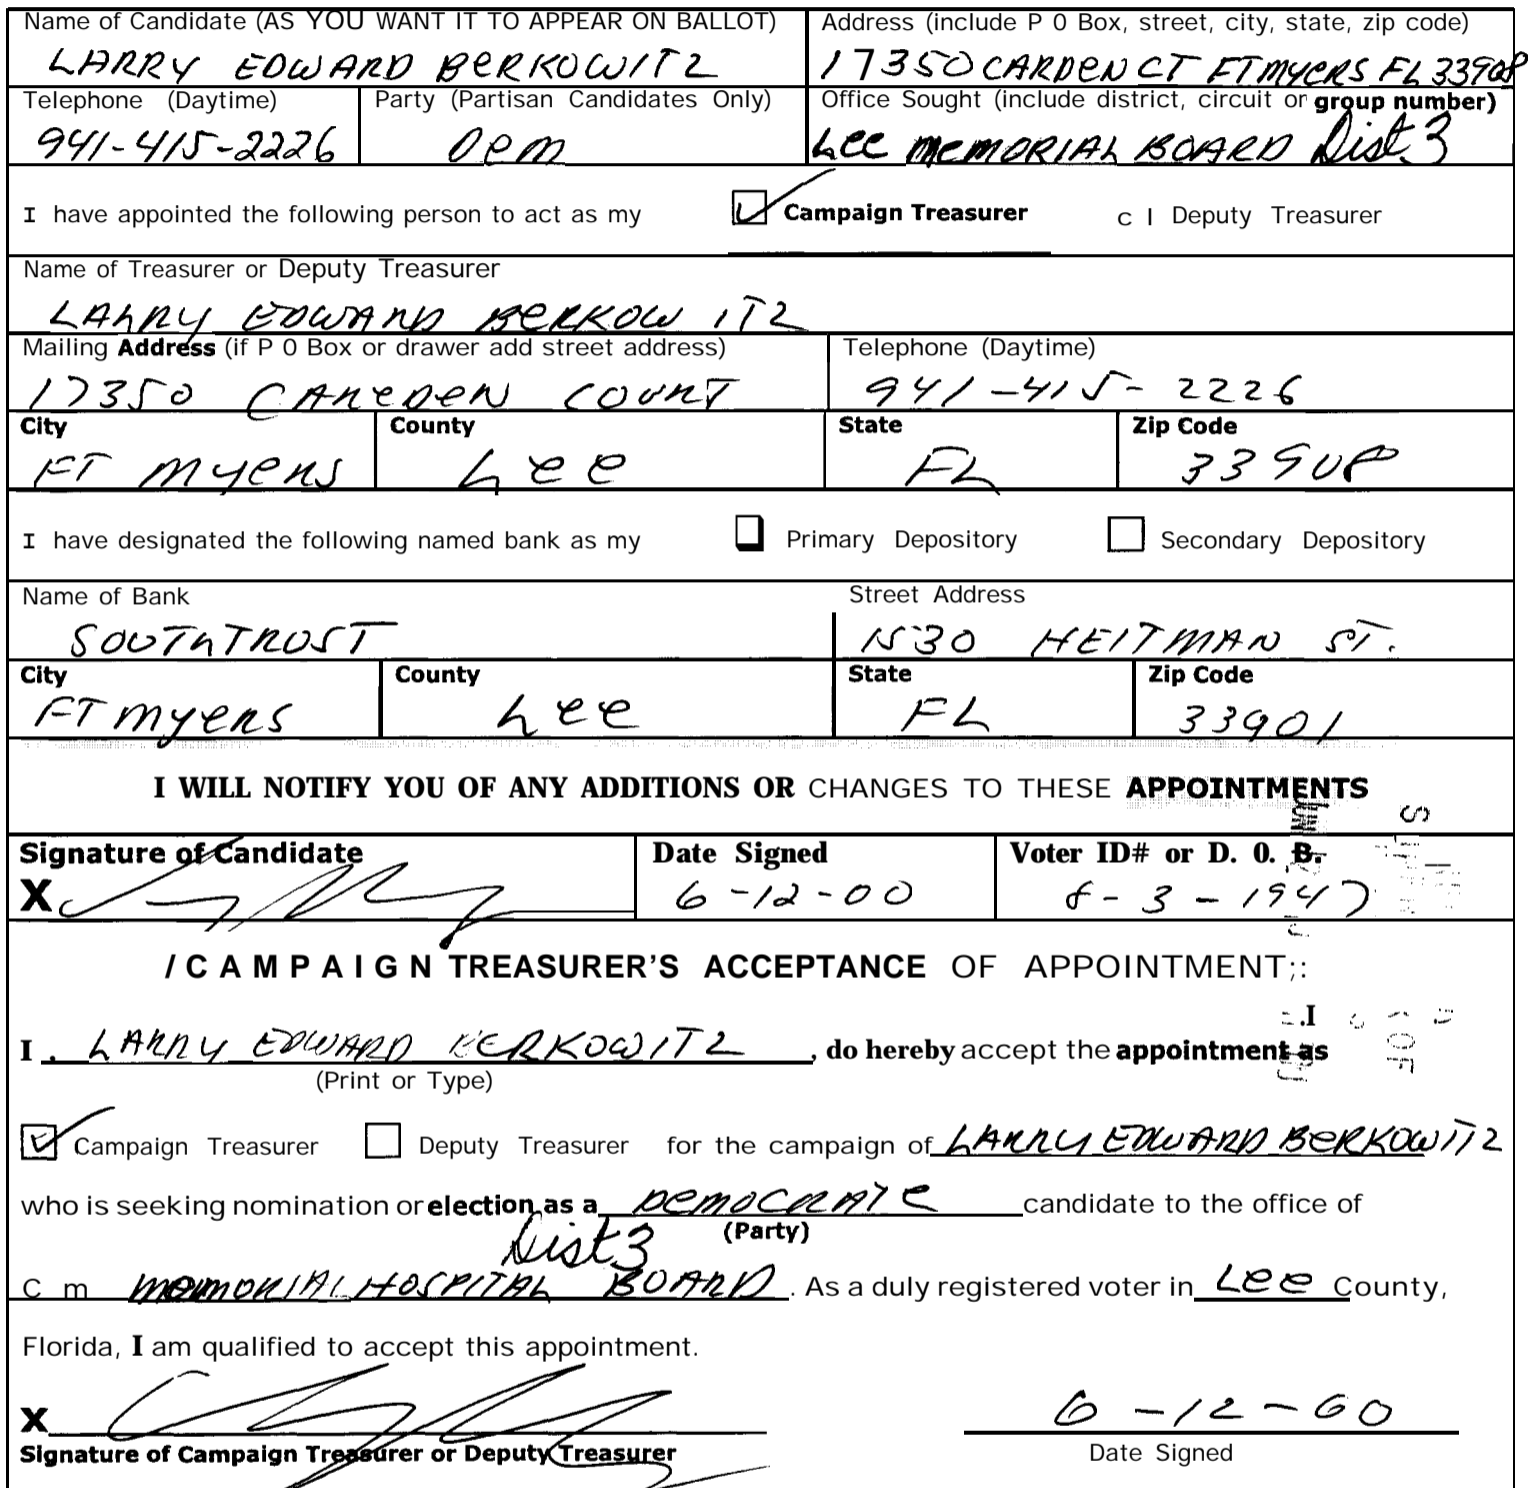 Name of Candidate (AS YOU WANT IT TO APPEAR ON BALLOT) Address (include P 0 Box, street, city, state, zip code)
LARRY EDWARD BERKOWITZ 17350 CARDEN CT FT MYERS FL 33908
Telephone (Daytime) Party (Partisan Candidates Only) Office Sought (include district, circuit or group number)
941-415-2226 Dem Lee MEMORIAL BOARD Dist. 3
I have appointed the following person to act as my Campaign Treasurer c I Deputy Treasurer
Name of Treasurer or Deputy Treasurer
LARRY EDWARD BERKOWITZ
Mailing Address (if P 0 Box or drawer add street address) Telephone (Daytime)
17350 COURT 941-415-2226
City County State Zip Code
FT Myers Lee FL 33908
I have designated the following named bank as my Primary Depository Secondary Depository
Name of Bank Street Address
SOUTHTRUST 1530 HEITMAN ST.
City County State Zip Code
FT Myers Lee FL 33901
I WILL NOTIFY YOU OF ANY ADDITIONS OR CHANGES TO THESE APPOINTMENTS
Signature of Candidate Date Signed Voter ID# or D. O. B.
X 6-12-00 8-3-1947
/ CAMPAIGN TREASURER'S ACCEPTANCE OF APPOINTMENT;:
I . LARRY EDWARD BERKOWITZ , do hereby accept the appointment as
(Print or Type)
Campaign Treasurer Deputy Treasurer for the campaign of LARRY EDWARD BERKOWITZ
who is seeking nomination or election as a DEMOCRATE candidate to the office of
Dist 3 (Party)
C m MEMORIAL HOSPITAL BOARD . As a duly registered voter in Lee County,
Florida, I am qualified to accept this appointment.
X 6-12-00
Signature of Campaign Treasurer or Deputy Treasurer Date Signed